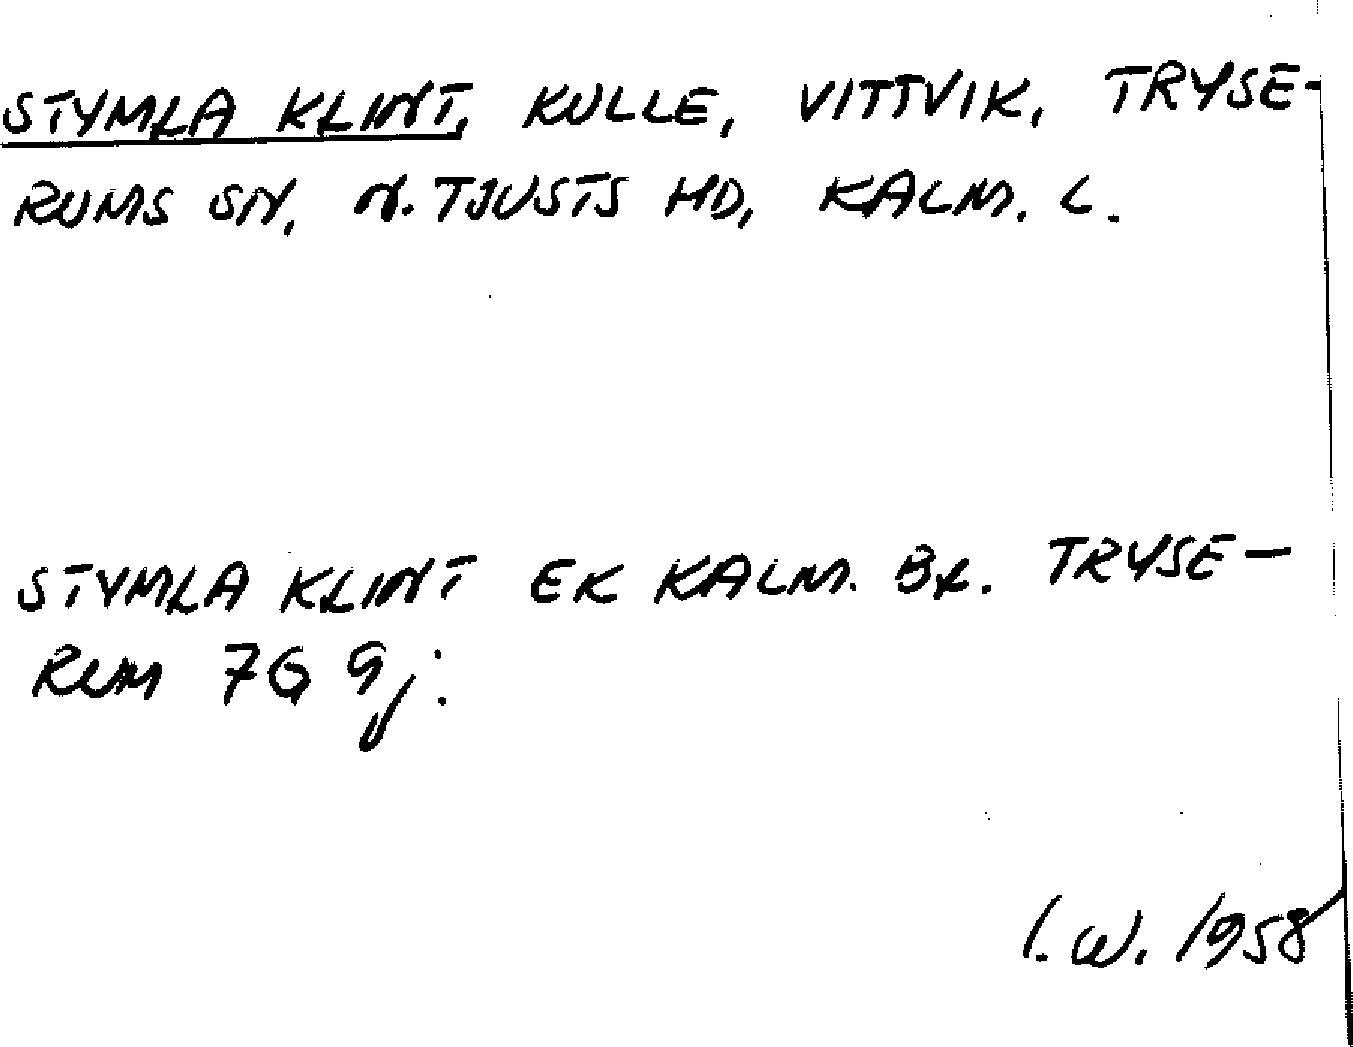 STYMLA KLINT, KULLE, VITTVIK, TRYSE-
RUMS SN, N. TJUSTS HD, KALM. L.
STYMLA KLINT EK KALM. BL. TRYSE-
RUM 7G 9j:
I. W. 1958